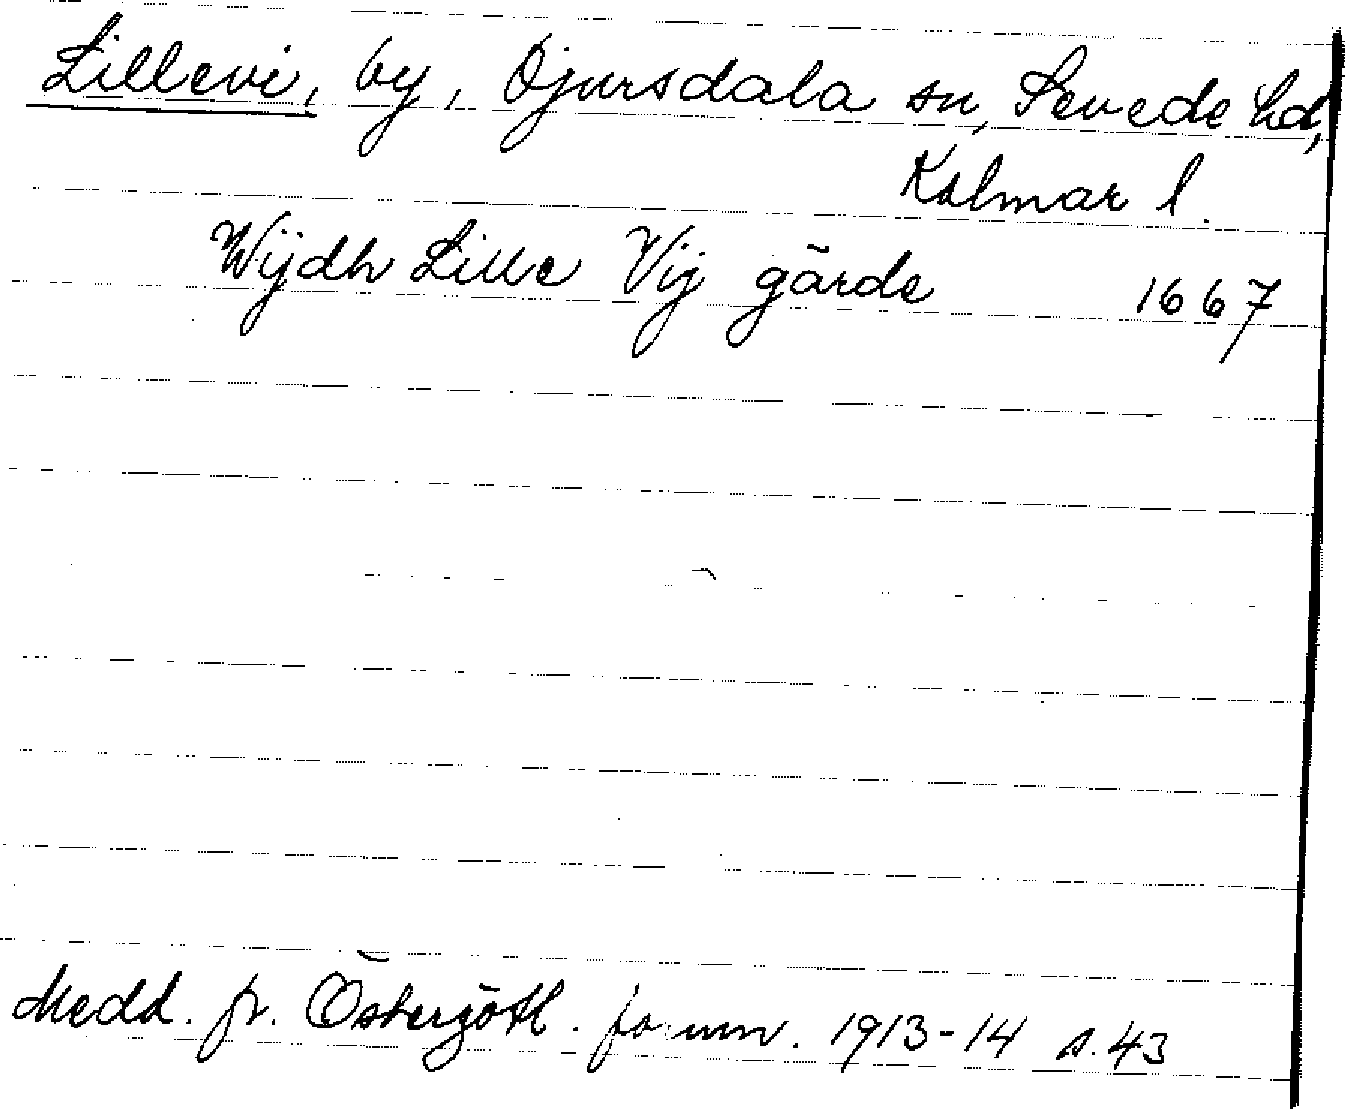 Lillevi, by, Djursdala sn, Sevede hd,
Kalmar l.
Wijdh Lille Vij gärde 1667
Medd. fr. Östergötl. fornm. 1913-14 s. 43